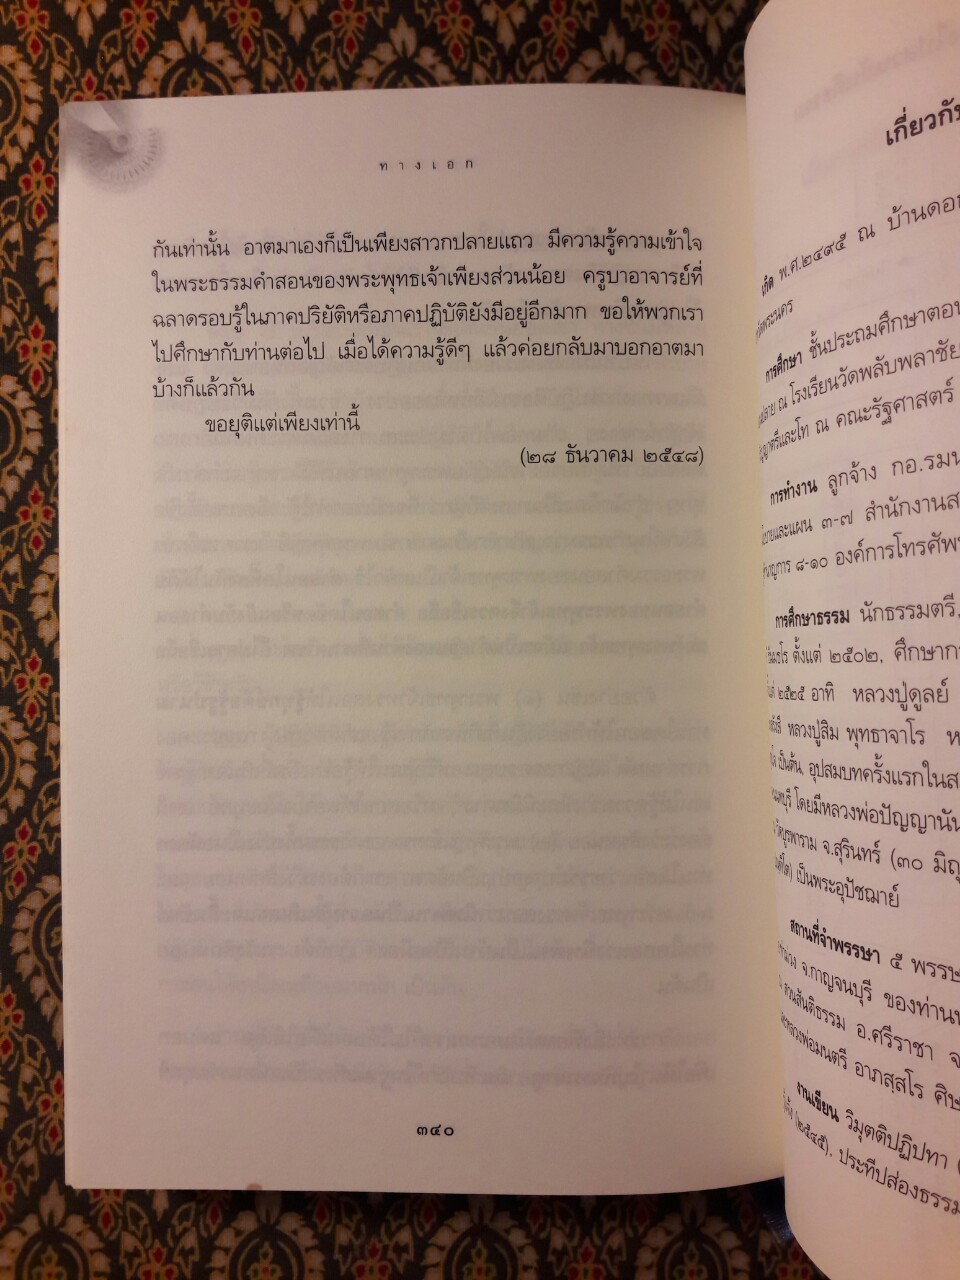 ทางเอก
กันเท่านั้น อาตมาเองก็เป็นเพียงสาวกปลายแถว มีความรู้ความเข้าใจ
ในพระธรรมคำสอนของพระพุทธเจ้าเพียงส่วนน้อย ครูบาอาจารย์ที่
ฉลาดรอบรู้ในภาคปริยัติหรือภาคปฏิบัติยังมีอยู่อีกมาก ขอให้พวกเรา
ไปศึกษากับท่านต่อไป เมื่อได้ความรู้ดีๆ แล้วค่อยกลับมาบอกอาตมา
บ้างก็แล้วกัน
ขอยุติแต่เพียงเท่านี้
(๒๘ ธันวาคม ๒๕๔๘)
๓๔๐
เกี่ยวกับ
เกิด พ.ศ.๒๔๙๕ ณ บ้านดอก
การศึกษา ชั้นประถมศึกษาตอน
ณ โรงเรียนวัดพลับพลาชัย
และโท ณ คณะรัฐศาสตร์
การทำงาน ลูกจ้าง กอ.รมน
และแผน ๓-๗ สำนักงานส
๘-๑๐ องค์การโทรศัพ
การศึกษาธรรม นักธรรมตรี,
ตั้งแต่ ๒๕๐๒, ศึกษาก
๒๕๒๕ อาทิ หลวงปู่ดูลย์
หลวงปู่สิม พุทธาจาโร ห
เป็นต้น, อุปสมบทครั้งแรกในส
โดยมีหลวงพ่อปัญญานัน
จ.สุรินทร์ (๓๐ มิถุ
เป็นพระอุปัชฌาย์
สถานที่จำพรรษา ๕ พรรษ
จ.กาญจนบุรี ของท่าน
สวนสันติธรรม อ.ศรีราชา จ
มนตรี อาภสฺสโร ศิษ
งานเขียน วิมุตติปฏิปทา (
(๒๕๔๕), ประทีปส่องธรรม